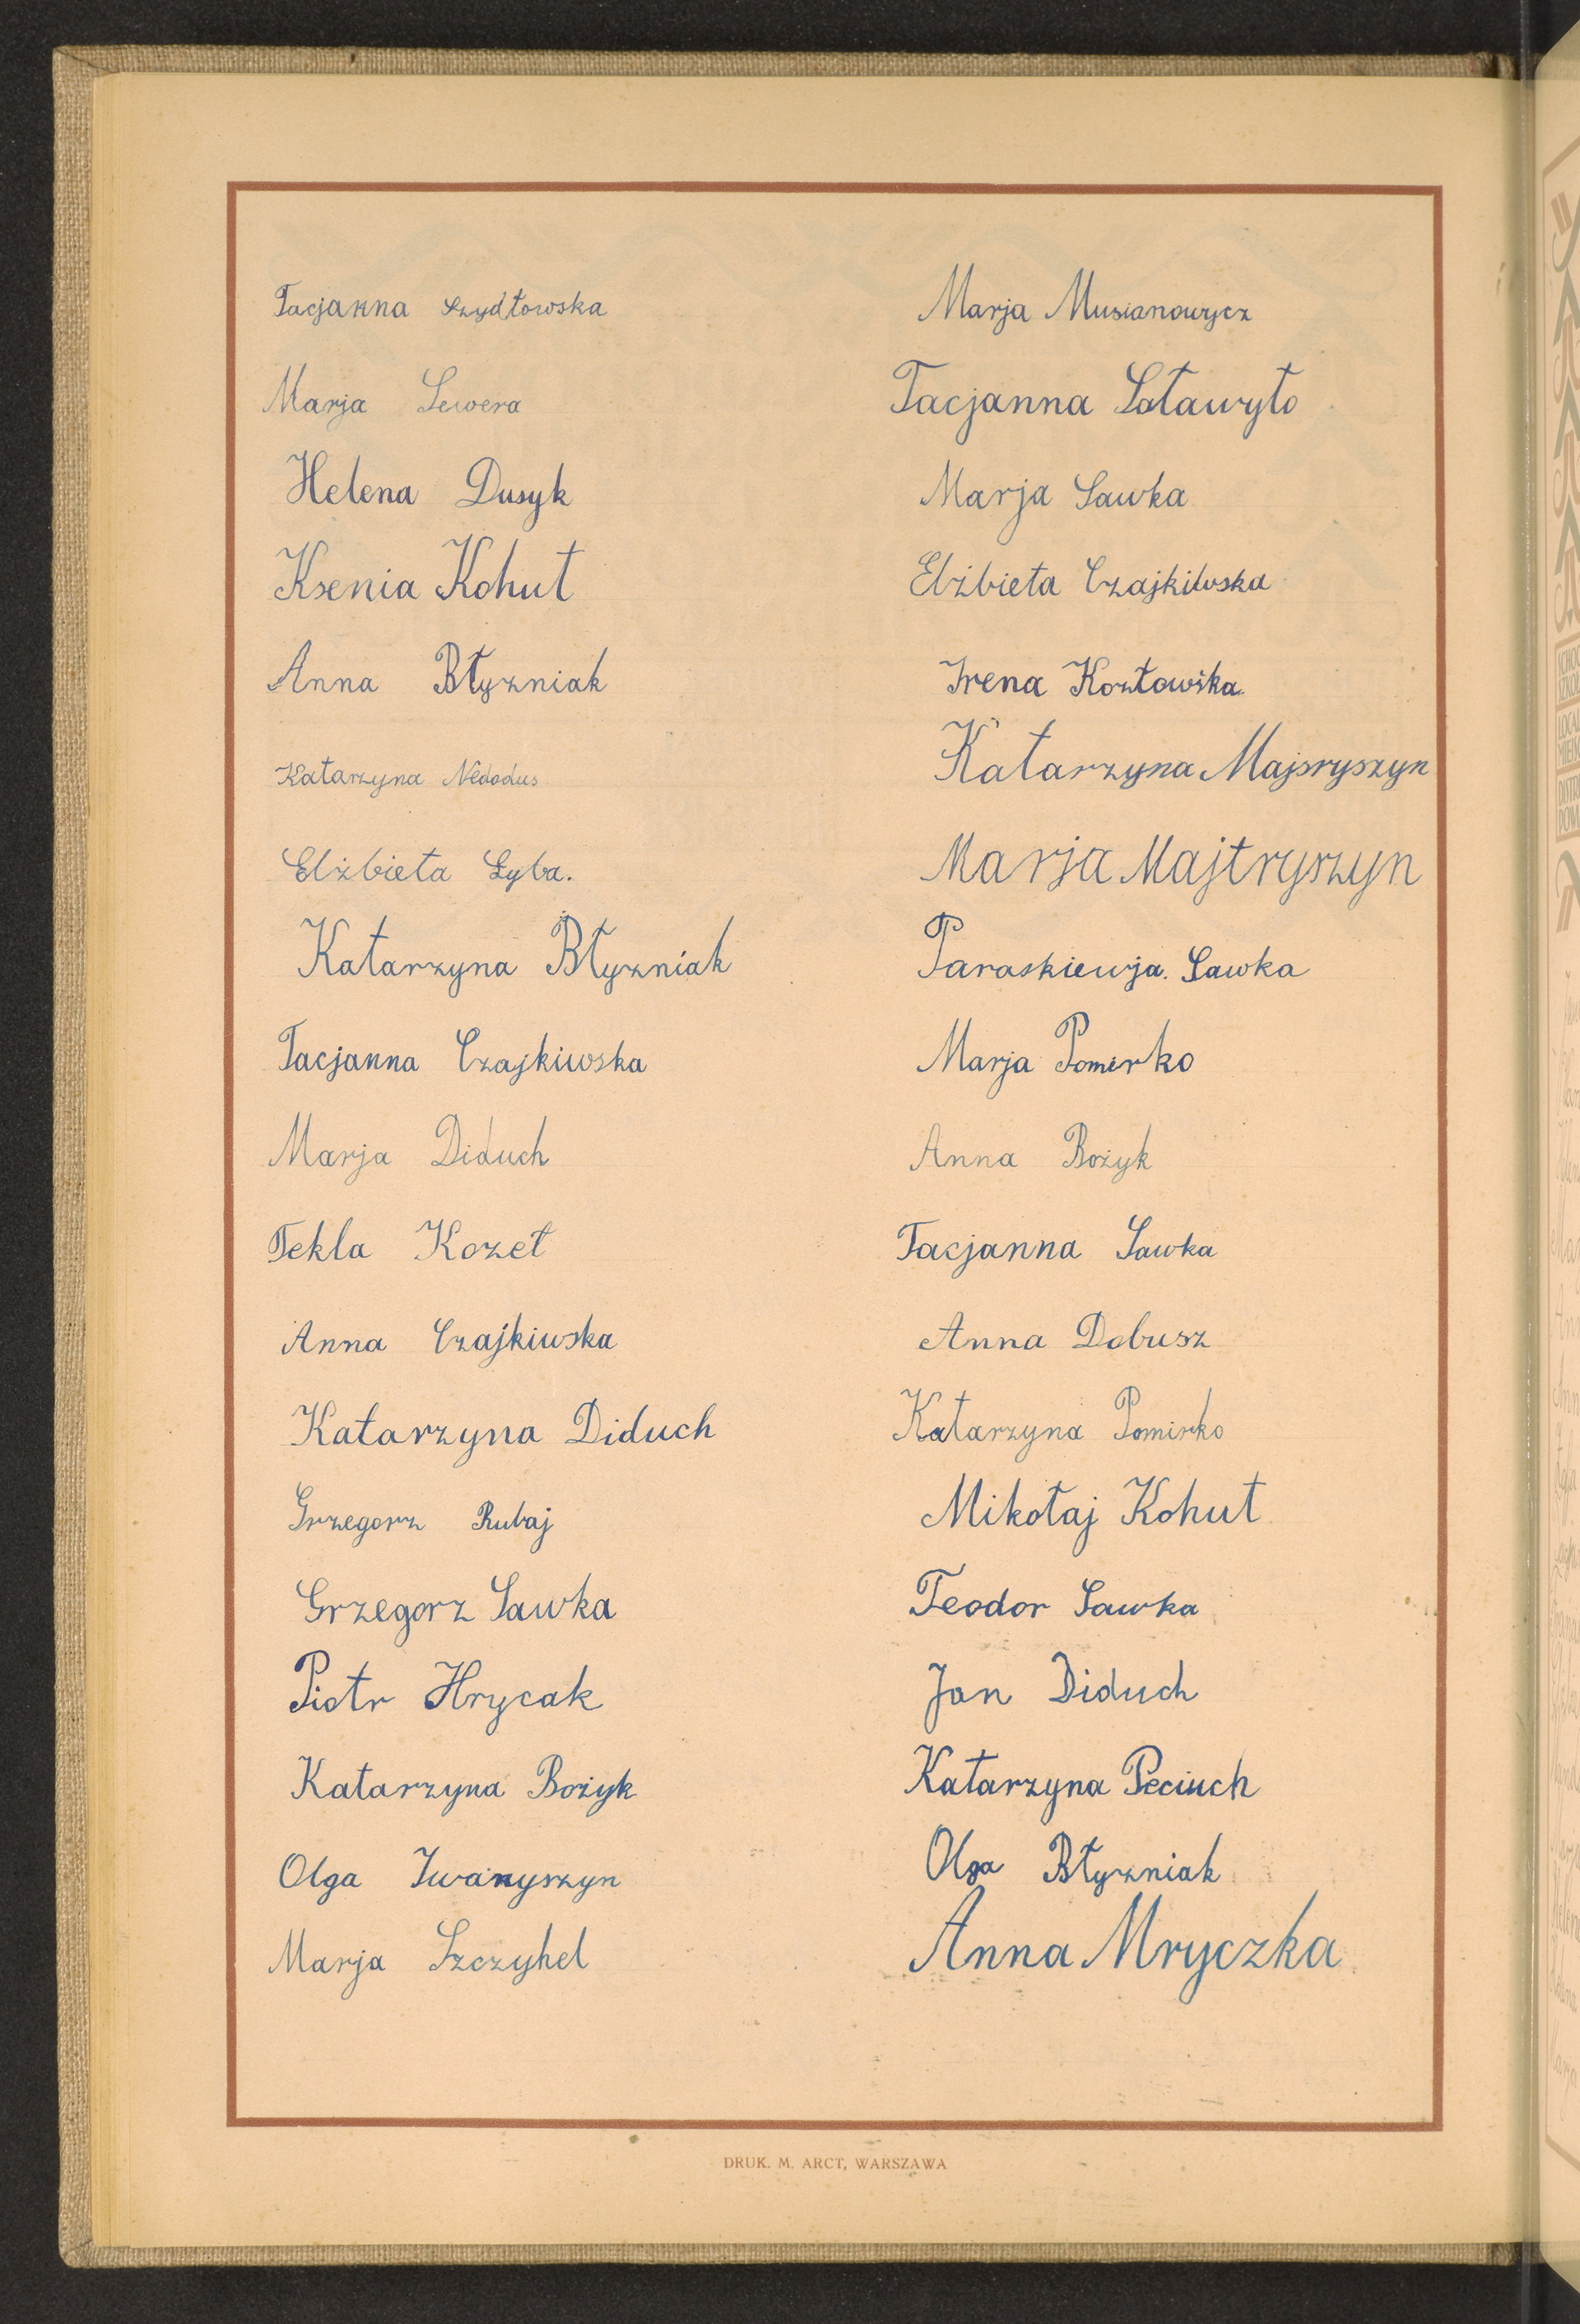 Tacjanna Szydłowska
Marja Sewera
Helena Dusyk
Ksenia Kohut
Anna Błyzniak
Katarzyna Nedodus
Elżbieta Łyba.
Katarzyna Błyzniak
Tacjanna Czajkiwska
Marja Diduch
Tekla Kozet
Anna Czajkiwska
Katarzyna Diduch
Grzegorz Rubaj
Grzegorz Sawka
Piotr Hrycak
Katarzyna Bożyk
Olga Iwanyszyn
Marja Szczyhel
Marja Musianowycz
Tacjanna Sotawyło
Marja Sawka
Elżbieta Czajkiwska
Irena Kozłowska
Katarzyna Majsryszyn
Marja Majtryszyn
Paraskiewja Sawka
Marja Pomirko
Anna Bożyk
Tacjanna Sawka
Anna Dobusz
Katarzyna Pomirko
Mikołaj Kohut
Teodor Sawka
Jan Diduch
Katarzyna Peciuch
Olga Błyzniak
Anna Mryczka
DRUK. M. ARCT, WARSZAWA